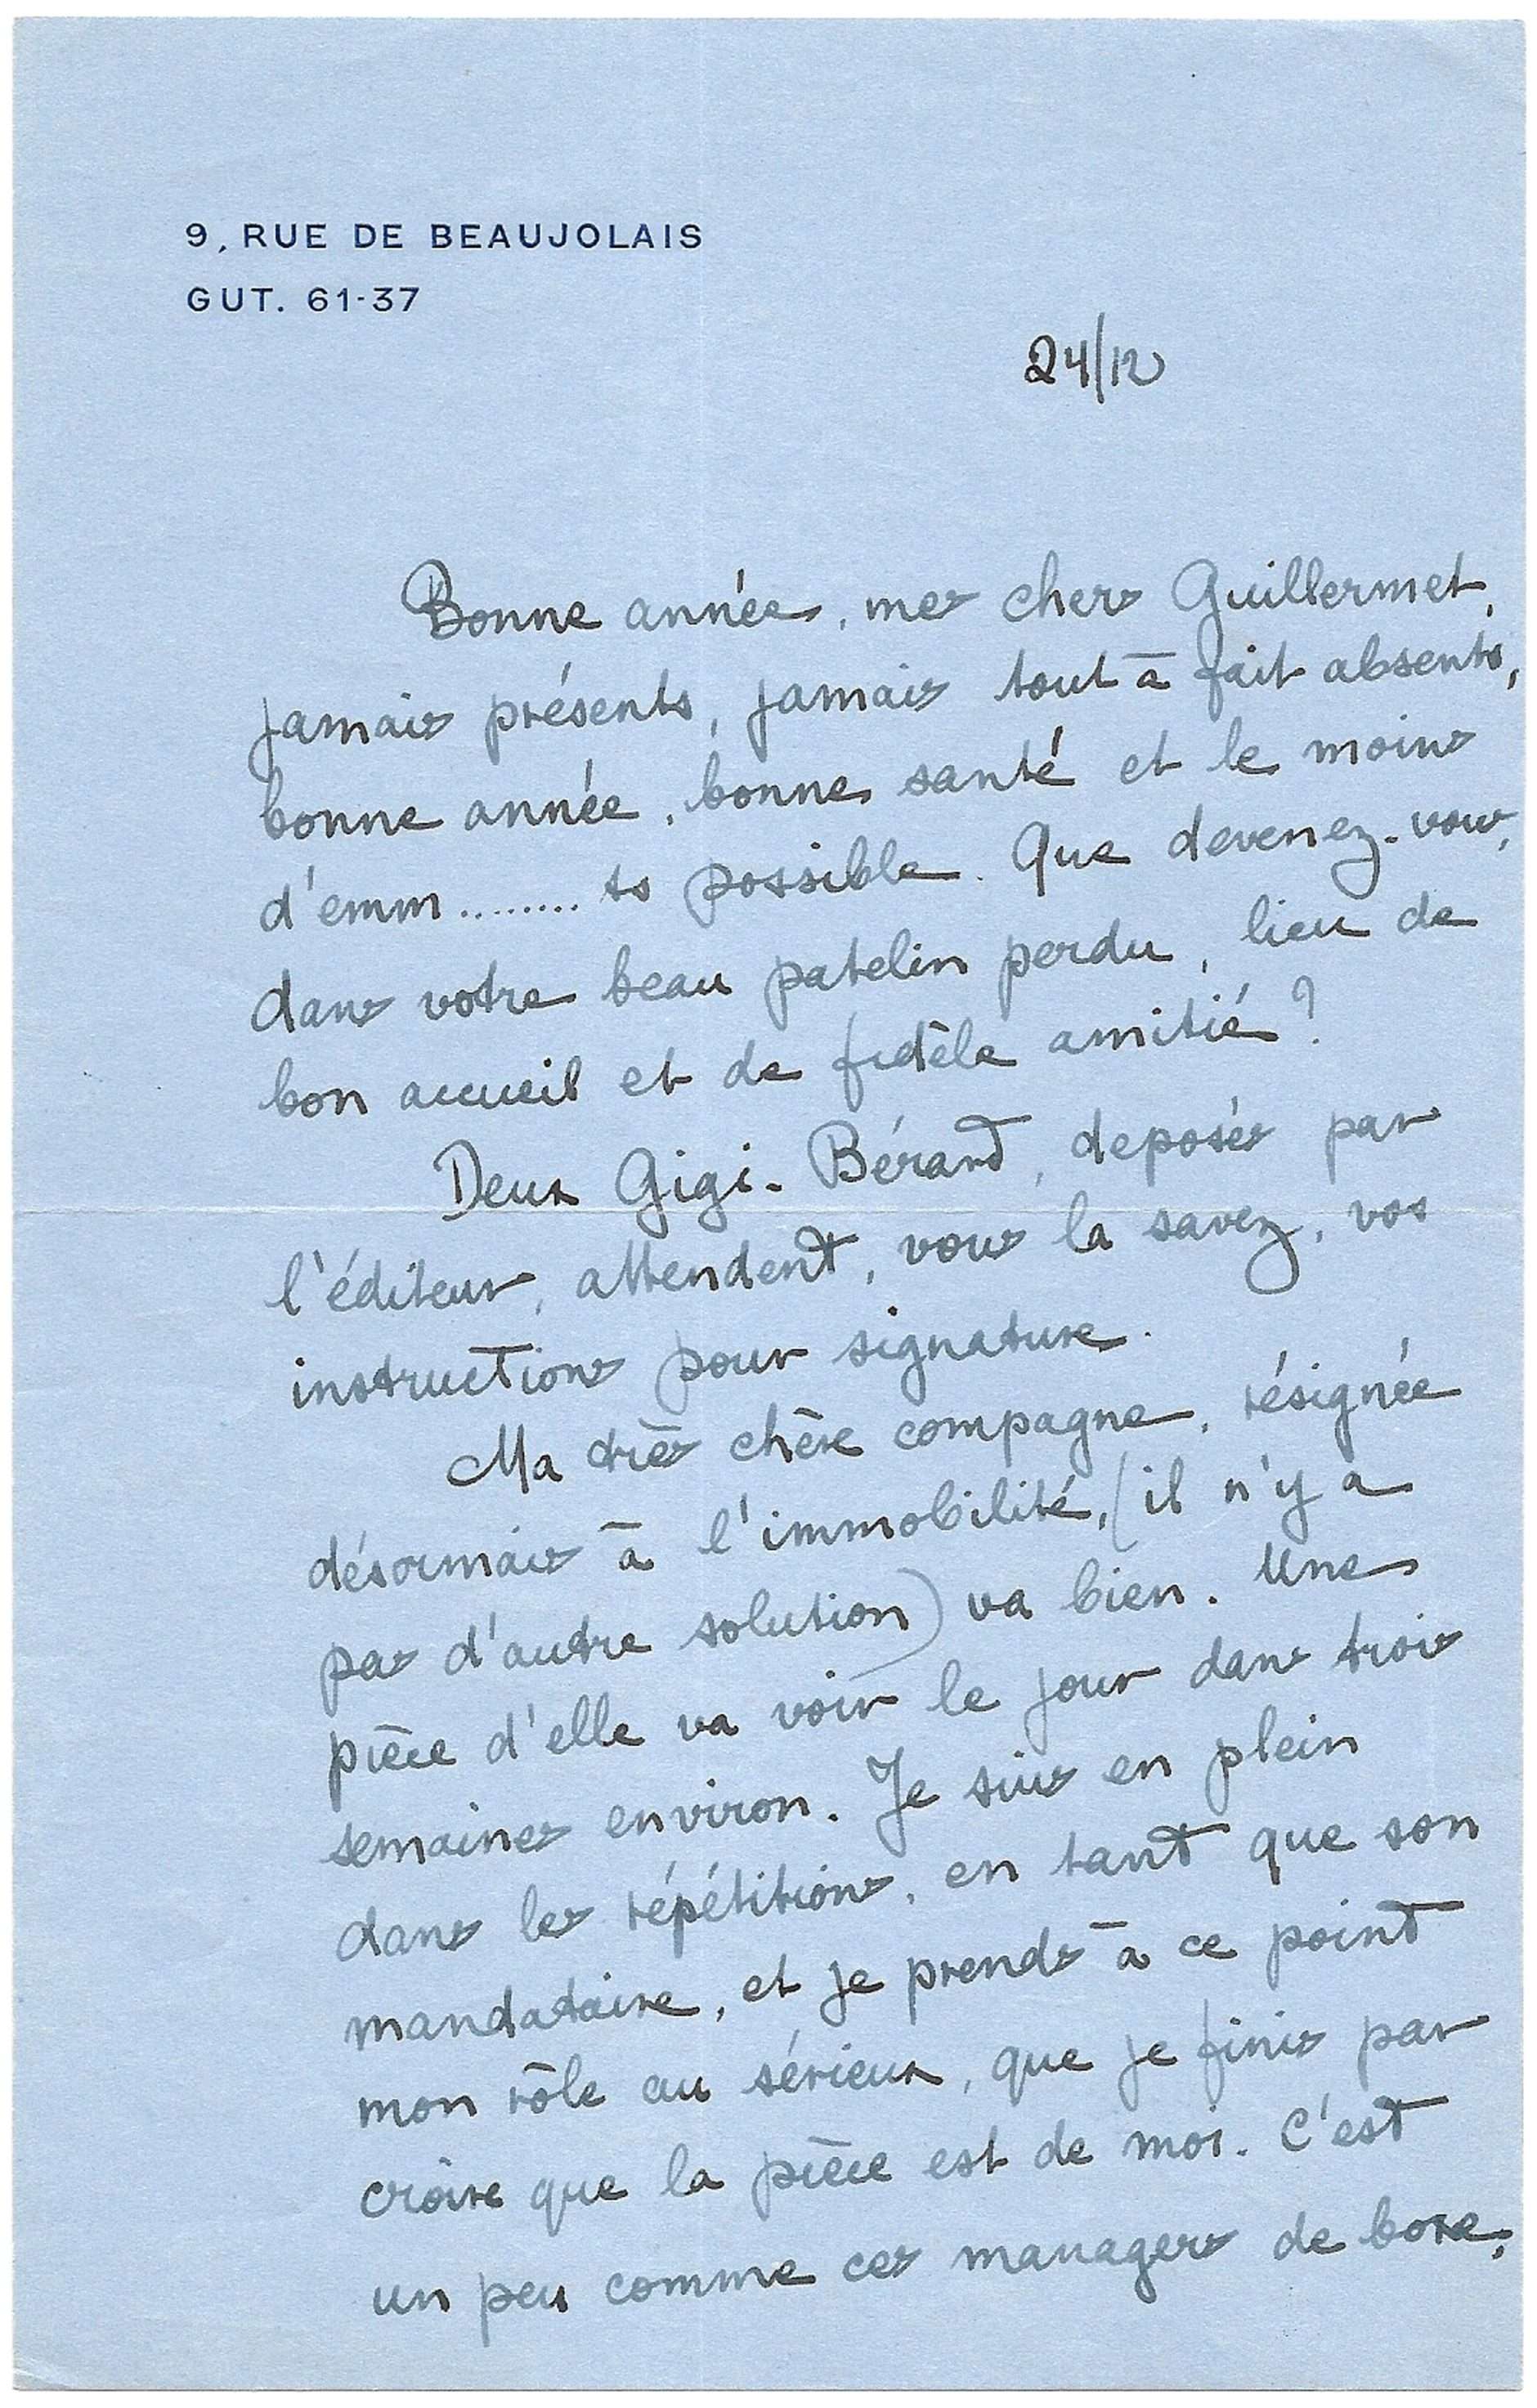 9, RUE DE BEAUJOLAIS
GUT. 61-37
24/12
Bonne année, mes chers Guillermet,
jamais présents, jamais tout à fait absents,
bonne année, bonne santé et le moins
d'emm........ts possible. Que devenez-vous,
dans votre beau patelin perdu, lieu de
bon accueil et de fidèle amitié ?
Deux Gigi-Bérard, déposés par
l'éditeur, attendent, vous la savez, vos
instructions pour signature.
Ma très chère compagne, résignée
désormais à l'immobilité, (il n'y a
pas d'autre solution) va bien. Une
pièce d'elle va voir le jour dans trois
semaines environ. Je suis en plein
dans les répétitions, en tant que son
mandataire, et je prends à ce point
mon rôle au sérieux, que je finis par
croire que la pièce est de moi. C'est
un peu comme ces managers de boxe,